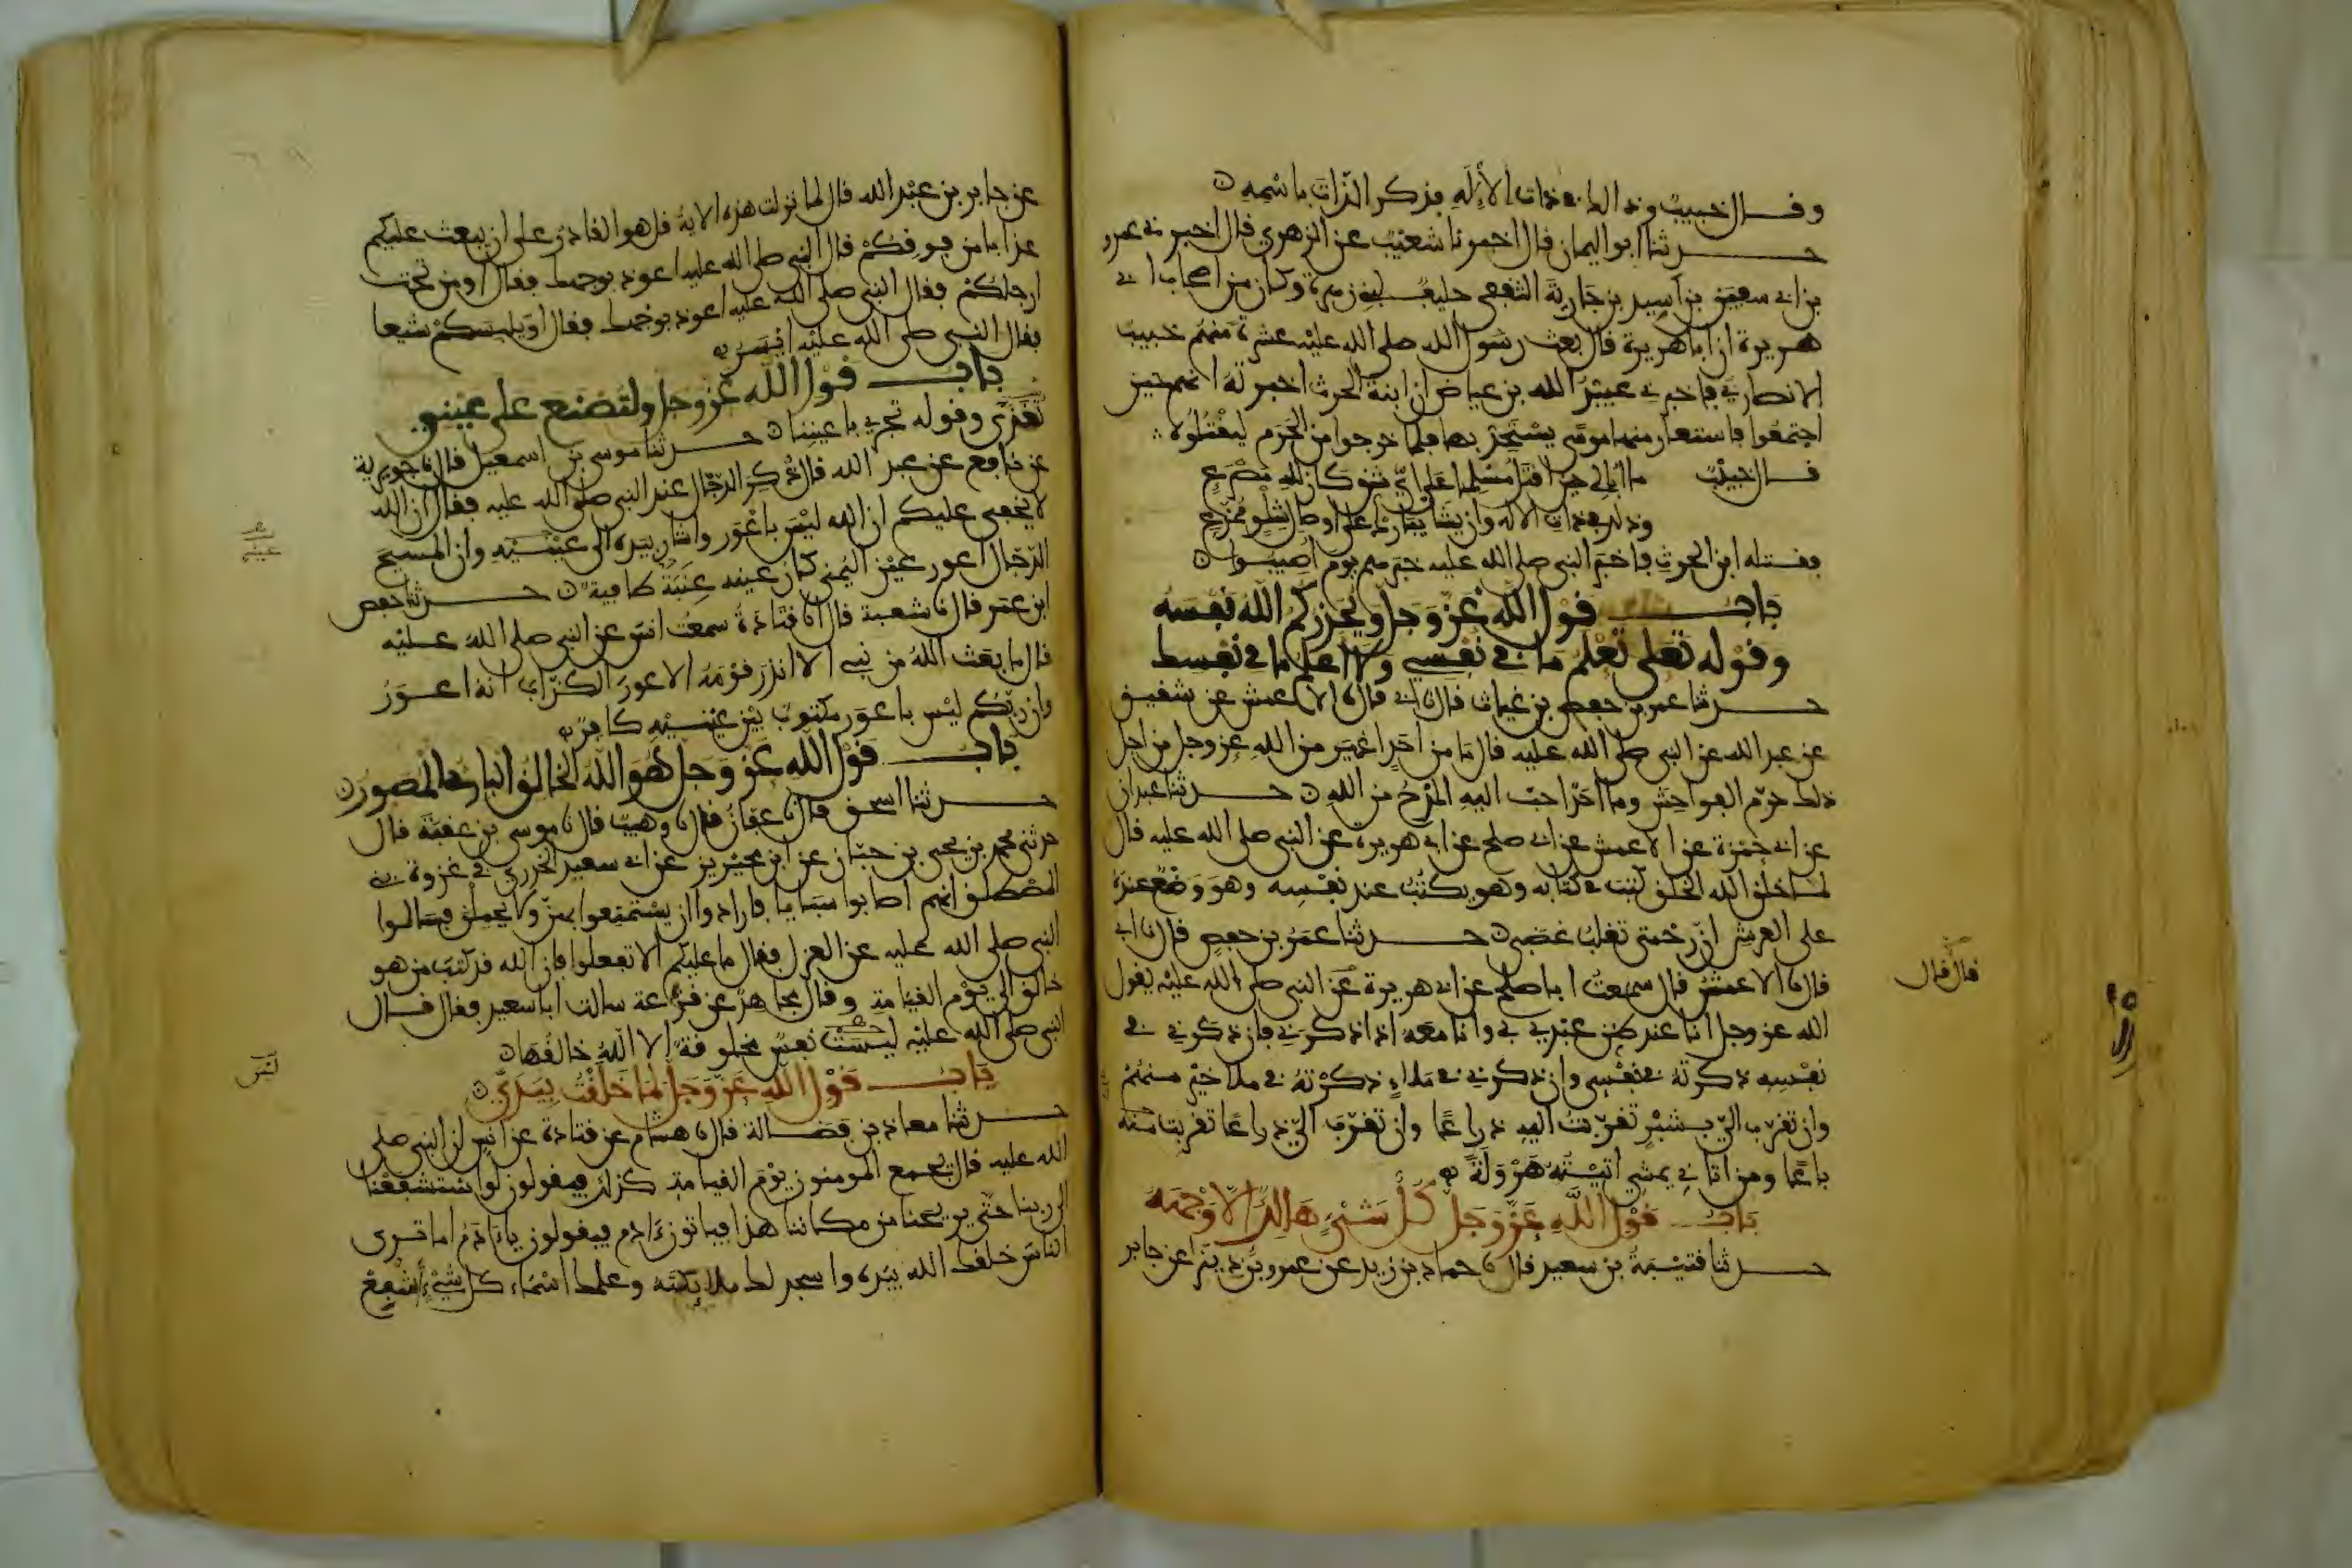 وقال خبيب وذلك في ذات الإله فذكر الذات باسمه
حدثنا ابو اليمان قال اخبرنا شعيب عن الزهري قال اخبرني عمرو
بن ابي سفين بن اسيد بن جارية الثقفي حليف لبني زهرة وكان من اصحاب ابي
هريرة ان ابا هريرة قال بعث رسول الله صلى الله عليه عشرة منهم خبيب
الانصاري فاخبرني عبيد الله بن عياض ان ابنة الحرث اخبرته انهم حين
اجتمعوا استعار منها موسى يستحد بها فلما خرجوا من الحرم ليقتلوه
قال خبيب ما ابالي حين اقتل مسلما على اي شق كان لله مصرع
وذلك في ذات الاله وان يشا يبارك على اوصال شلو ممزع
فقتله ابن الحرث فاخبر النبي صلى الله عليه خبرهم يوم اصيبوا
باب قول الله عز وجل ويحذركم الله نفسه
وقوله تعلى تعلم ما في نفسي ولا اعلم ما في نفسك
حدثنا عمر بن حفص بن غياث قال نا ابي قال نا الاعمش عن شقيق
عن عبد الله عن النبي صلى الله عليه قال ما من احد اغير من الله عز وجل من اجل
ذلك حرم الفواحش وما احد احب اليه المدح من الله حدثنا عبدان
عن ابي حمزة عن الاعمش عن ابي صلح عن ابي هريرة عن النبي صلى الله عليه قال
لما خلق الله الخلق كتب في كتابه وهو يكتب عند نفسه وهو وضع عنده
على العرش ان رحمتي تغلب غضبي حدثنا عمر بن حفص قال نا ابي
قال نا الاعمش قال سمعت ابا صلح عن ابي هريرة عن النبي صلى الله عليه يقول
الله عز وجل انا عند ظن عبدي بي وانا معه اذا ذكرني فان ذكرني في
نفسه ذكرته في نفسي وان ذكرني في ملاء ذكرته في ملا خير منهم
وان تقرب الي بشبر تقربت اليه ذراعا وان تقرب الي ذراعا تقربت منه
باعا ومن اتاني يمشي اتيته هرولة
باب قول الله عز وجل كل شيء هالك الا وجهه
حدثنا قتيبة بن سعيد قال نا حماد بن زيد عن عمرو بن دينر عن جابر
قال قال
عن جابر بن عبد الله قال لما نزلت هذه الاية قل هو القادر على ان يبعث عليكم
عذابا من فوقكم قال النبي صلى الله عليه اعوذ بوجهك فقال او من تحت
ارجلكم فقال النبي صلى الله عليه اعوذ بوجهك فقال او يلبسكم شيعا
فقال النبي صلى الله عليه ايسر
باب قول الله عز وجل ولتصنع على عيني
تغذى وقوله تجري باعيننا حدثنا موسى بن اسمعيل قال نا جويرية
عن نافع عن عبد الله قال ذكر الدجال عند النبي صلى الله عليه فقال ان الله
لا يخفى عليكم ان الله ليس باعور واشار بيده الى عينيه وان المسيح
الدجال اعور عين اليمنى كان عينه عنبة طافية حدثنا حفص
ابن عمر قال نا شعبة قال انا قتادة سمعت انس عن النبي صلى الله عليه
قال ما بعث الله من نبي الا انذر قومه الاعور الكذاب انه اعور
وان ربكم ليس باعور مكتوب بين عينيه كافر
باب قول الله عز وجل هو الله الخالق البارئ المصور
حدثنا اسحق قال نا عفان قال نا وهيب قال نا موسى بن عقبة قال
حدثني محمد بن يحيى بن حبان عن ابن محيريز عن ابي سعيد الخدري في غزوة بني
المصطلق انهم اصابوا سبايا فارادوا ان يستمتعوا بهن ولا يحملن فسالوا
النبي صلى الله عليه عن العزل فقال ما عليكم الا تفعلوا فان الله قد كتب من هو
خالق الى يوم القيامة وقال مجاهد عن قزعة سالت ابا سعيد فقال قال
النبي صلى الله عليه ليست نفس مخلوقة الا الله خالقها
باب قول الله عز وجل لما خلقت بيدي
حدثنا معاذ بن فضالة قال نا هشام عن قتادة عن انس ان النبي صلى
الله عليه قال يجمع المومنون يوم القيامة كذلك فيقولون لو استشفعنا
الى ربنا حتى يريحنا من مكاننا هذا فياتون ءادم فيقولون ياءادم اما ترى
الناس خلقك الله بيده واسجد لك ملايكته وعلمك اسماء كل شيء اشفع